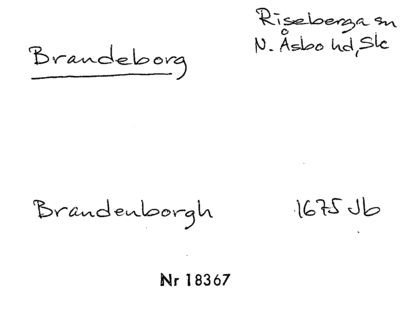 Brandeborg
Riseberga sn
N. Åsbo hd, Sk
Brandenborgh 1675 Jb
Nr 18367